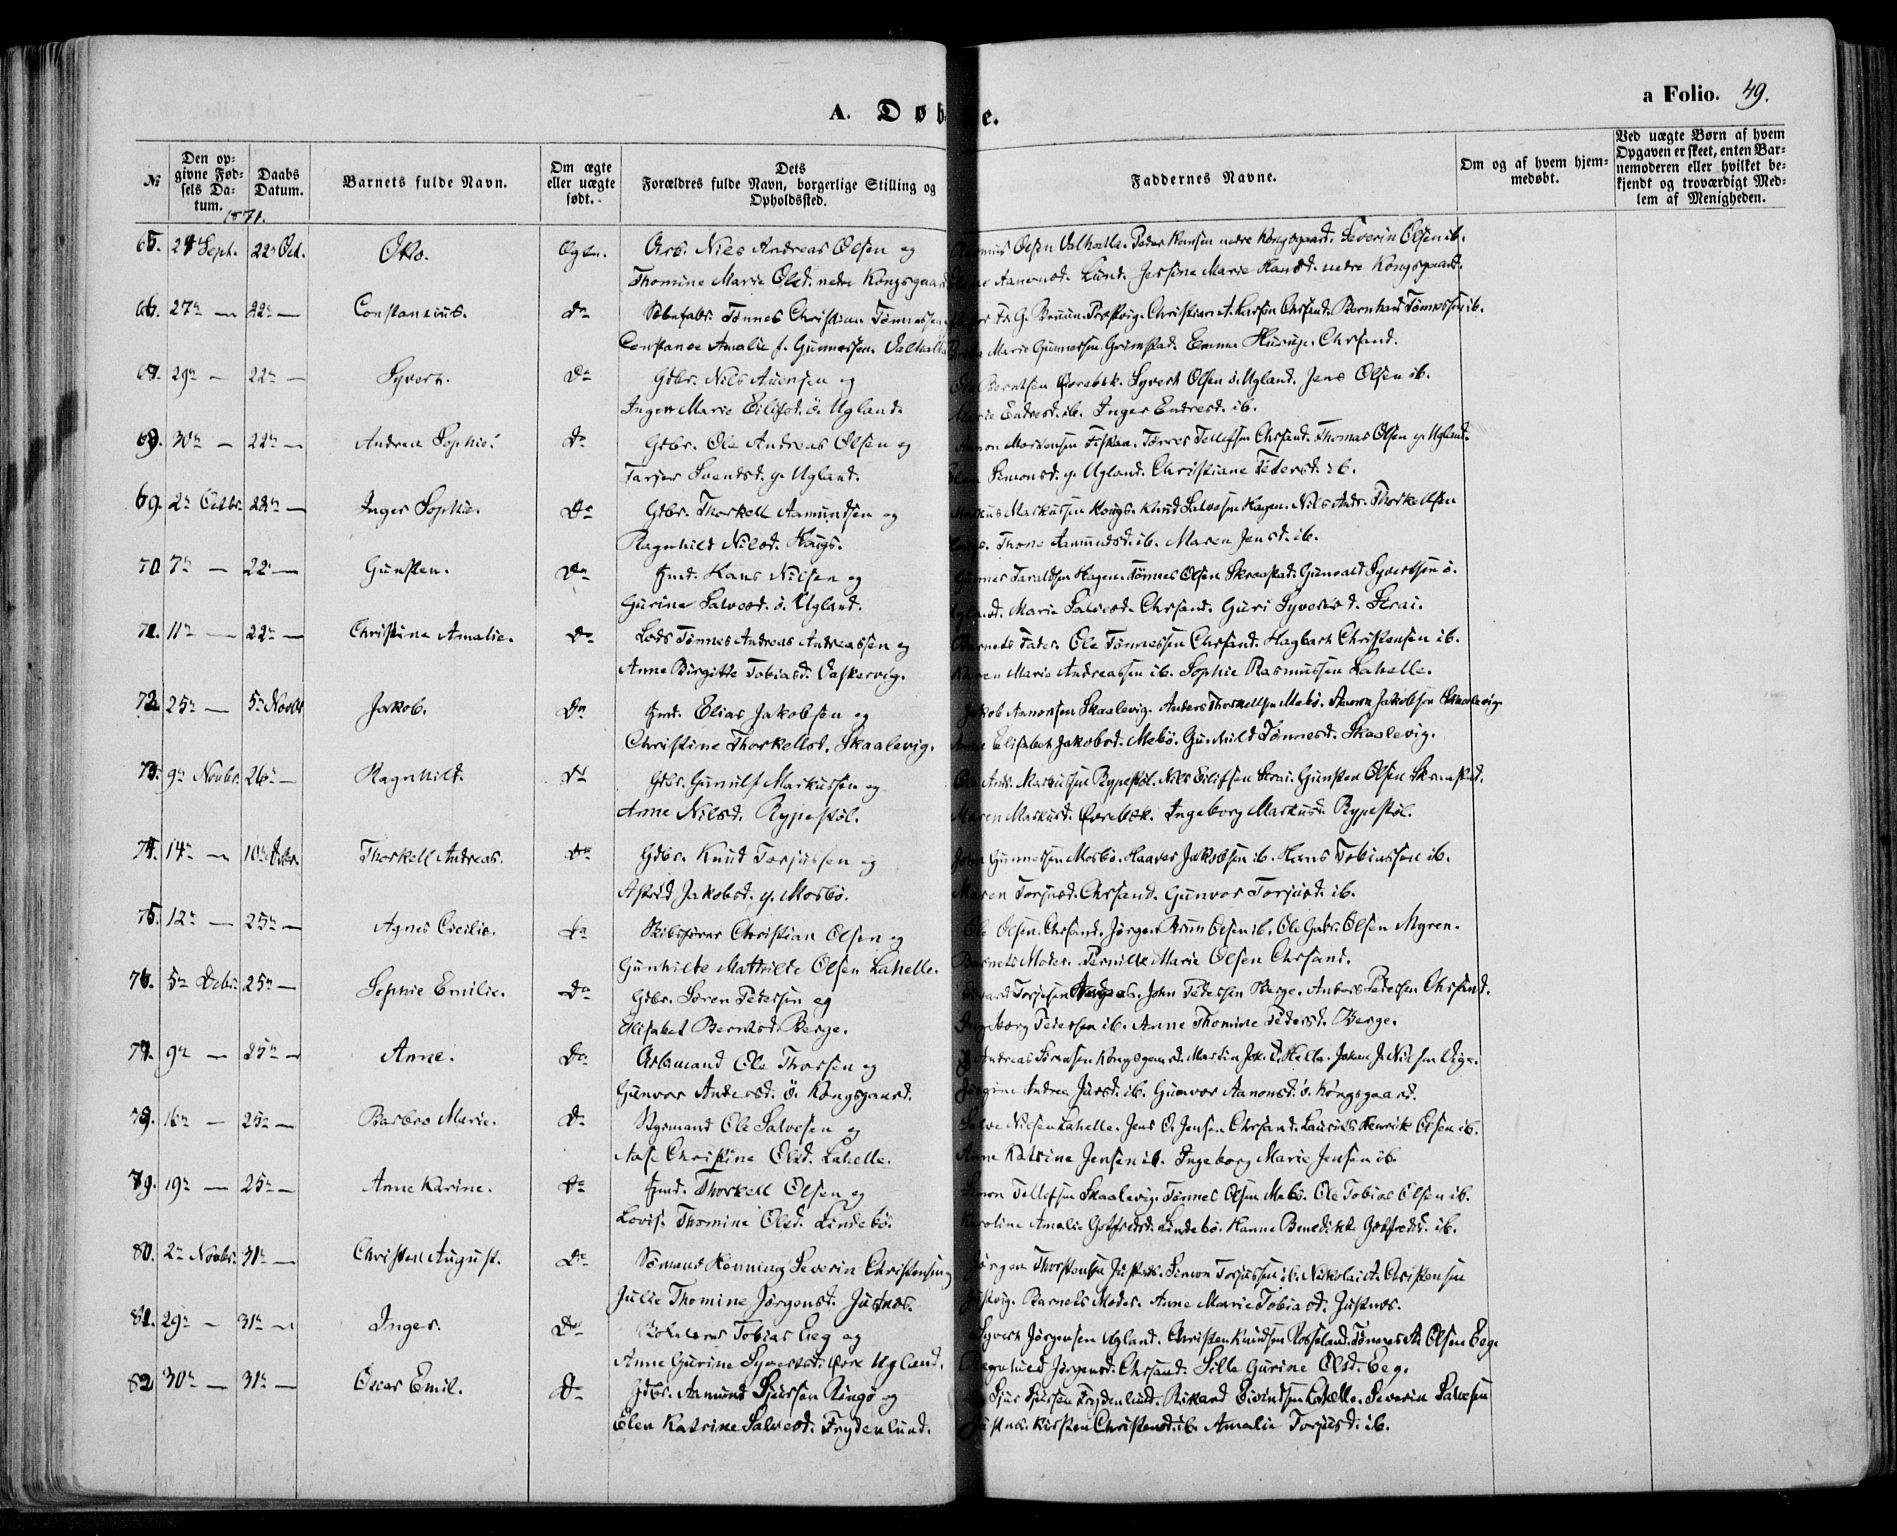 a Folio. 49.
A. Døb
e.
№
Den opgivne Fødsels Datum.
Daabs Datum.
Barnets fulde Navn.
Om ægte eller uægte født.
Dets Forældres fulde Navn, borgerlige Stilling og Opholdssted.
Faddernes Navne.
Om og af hvem hjemmedøbt.
Ved uægte Børn af hvem Opgaven er skeet, enten Barnemoderen eller hvilket bekjendt og troværdigt Medlem af Menigheden.
1871.
65. 24 Sept. 22 Oct. Arb. Niels Andreas Olsen og Olsen Valhalla. Peder Hansen nedre Kongsgaard. Severin Olsen ib.
Thomine Marie Olsd. nedre Kongsgaard Aanonsd. Lund. Jessine Marie Hansd. nedre Kongsgaard.
66. 27 — 22 — Constantius. Do Tønnes Christian Tønnessen G. Bruun. Christian A. Larsen Chrsand. Bernhard Tønnessen ib.
Constance Amalie f. Gunnersen. Valhalla Marie Gunnersen Grimstad. Emma Chrsand.
67. 29 — 22 — Syvert. Do Gbr. Nils Auensen og Berntsen Syvert Olsen ö. Ugland. Jens Olsen ib.
Inger Marie Eilifsd. ö. Ugland. Marie Endresd. ib. Inger Endresd. ib.
68. 30 — 22 — Andrea Sophie. Do Gbr. Ole Andreas Olsen og Aanon Mortensen Fiskaa. Tønnes Tellefsen Chrsand. Thomas Olsen y. Ugland.
Tarjer Svendsd. y. Ugland. Simonsd. y. Ugland. Christiane Pedersd. ib.
69. 2 Octbr. 22 — Inger Sophie. Do Gbr. Thorkell Aamundsen og Markussen Haugs. Knud Salvesen Hagen. Nils Andr. Thorkellsen
Ragnhild Nilsd. Haugs. Thone Aamundsd. ib. Maren Jensd. ib.
70. 7 — 22 — Gunsten. Do Hans Nilsen og Gunner Taraldsen Hagen. Tønnes Olsen Skraastad. Gunvald Syvertsen ö.
Gurine Salvesd. ö. Ugland. Ugland. Marie Salvesd. Chrsand. Guri Syvertsd. Strai.
71. 11 — 22 — Christine Amalie. Do Lods Tønnes Andreas Andreassen og Barnets Fader. Ole Tønnessen Chrsand. Hagbart Christensen ib.
Anne Birgitte Tobiasd. Vaskervig. Karen Marie Andreassen ib. Sophie Rasmussen Lahelle.
72. 25 — 5 Novbr Jakob. Do Elias Jakobsen og Jakob Aanonsen Skaalevig. Anders Thorkellsen Mebö. Aanon Jakobsen Skaalevig.
Christine Thorkellsd. Skaalevig. Anne Elisabet Jakobsd. Mebö. Gunhild Tønnesd. Skaalevig.
73. 9 Novbr. 26 — Ragnhild. Do Gbr. Gunulf Markussen og Ole Andr. Markussen Rypestöl. Nils Eilifsen Strai. Gunsten Olsen Skraastad.
Anne Nilsd. Rypestöl. Maren Markusd. Ingeborg Markusd. Rypestöl.
74. 14 — 10 Dcbr. Thorkell Andreas. Do Gbr. Knud Torjussen og John Gunnersen Mosbö. Haaver Jakobsen ib. Hans Tobiassen ib.
Astrid Jakobsd. y. Mosbö. Maren Torjusd. Chrsand. Gunvor Torjusd. ib.
75. 12 — 25 — Agnes Cicilie. Do Skibsfører Christian Olsen og Ole Olsen. Chrsand. Jørgen Olsen ib. Ole Gabr. Olsen Myren.
Gunhilde Mathilde Olsen Lahelle. Barnets Moder. Pernille Marie Olsen Chrsand.
76. 5 Dcbr. 25 — Sophie Emilie. Do Gbr. Søren Pedersen og Torjusen John Pedersen Berge. Anders Pedersen Chrsand.
Elisabet Berntsd. Berge. Ingeborg Pedersen ib. Anne Thomine Pedersd. Berge.
77. 9 — 25 — Anne. Do Arbmand Ole Thorsen og Andreas Sörensen Kongsgaard. Martin Jak. Hella. Johan J. Nielsen Eige.
Gunvor Andersd. ö. Kongsgaard. Jørgine Andrea ib. Gunvor Aanonsd. ö. Kongsgaard.
78. 16 — 25 — Barbro Marie. Do Styrmand Ole Salvesen og Salve Nielsen Lahelle. Jens O. Jensen Chrsand. Laurits Henrik Olsen ib.
Aase Christine Olsd. Lahelle. Anne Katrine Jensen ib. Ingeborg Marie Jensen ib.
79. 19 — 25 — Anne Karine. Do Thorkell Olsen og Simon Tellefsen Skaalevig. Tønnes Olsen Mebö. Ole Tobias Olsen ib.
Lovise Thomine Olsd. Lindebö. Karoline Amalie Gotfredsd. Lindebö. Hanne Benedikte Gotfredsd. ib.
80. 2 Novbr. 31 — Christen August. Do Sømand Henning Severin Christensen og Jørgen Thorstensen Justnæs. Simon Torjussen ib. Nikolai A. Christensen
Julie Thomine Jørgensd. Justnæs. Justvig. Barnets Moder. Anne Marie Tobiasd. Justnæs.
81. 29 — 31 — Inger. Do Tobias Eeg og Syvert Jørgensen Ugland. Christen Knudsen Rosseland. Tønnes A. Olsen Eeg
Anne Gurine Syvertsd. Ugland. Jørgensd. Chrsand. Sille Gurine Olsd. Eeg.
82. 30 — 31 — Oscar Emil. Do Gbr. Aamund Sjursen Ringö og Sjur Sjursen Frydenlund. Rikard Eivindsen Lahelle. Severin Salvesen
Elen Katrine Salvesd. Frydenlund. Justnæs. Kirsten Christensd. ib. Amalie Torjusd. ib.